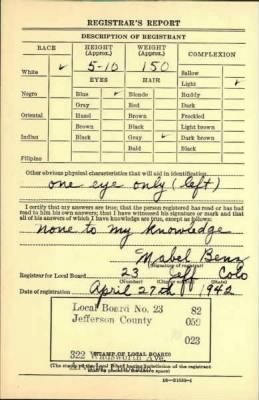 REGISTRAR'S REPORT
DESCRIPTION OF REGISTRANT
RACE HEIGHT (Approx.) WEIGHT (Approx.) COMPLEXION
5-10 150 Sallow
White ✓ EYES HAIR Light ✓
Negro Blue ✓ Blonde Ruddy
Gray Red Dark
Oriental Hazel Brown Freckled
Brown Black Light brown
Indian Black Gray ✓ Dark brown
Bald Black
Filipino
Other obvious physical characteristics that will aid in identification
one eye only (left)
I certify that my answers are true; that the person registered has read or has had
read to him his own answers; that I have witnessed his signature or mark and that
all of his answers of which I have knowledge are true, except as follows:
none to my knowledge
Mabel Benz
(Signature of registrar)
Registrar for Local Board 23 Jeff Colo
Date of registration April 27th 1942
Local Board No. 23 82
Jefferson County 059
023
322 Wadsworth Ave.
(STAMP OF LOCAL BOARD)
(The stamp of the Local Board having jurisdiction of the registrant
shall be placed in the above space)